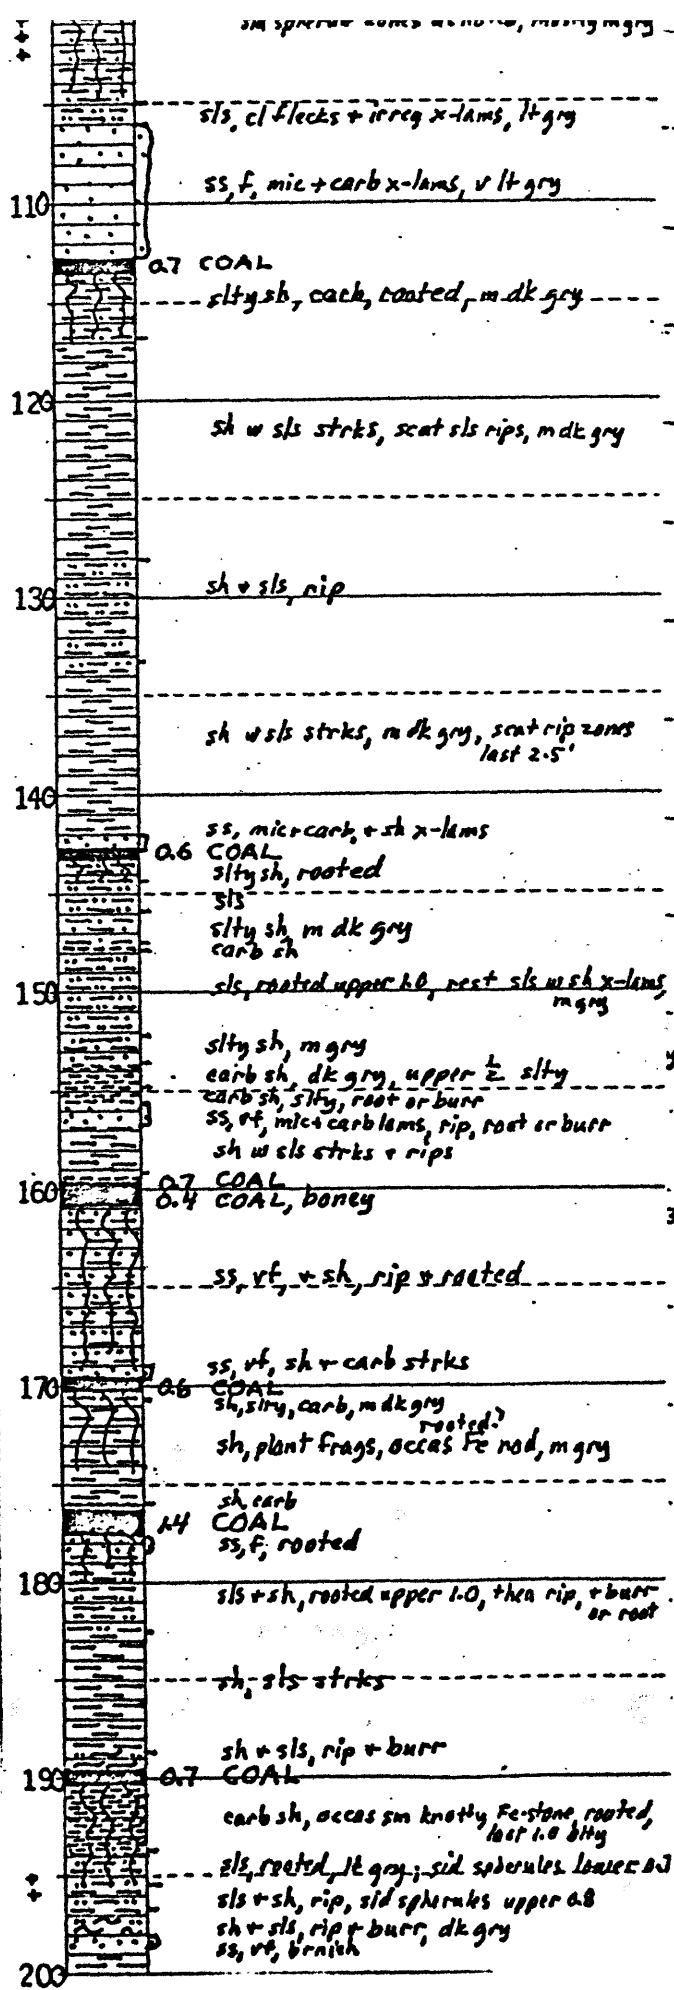 sls, cl flecks + irreg x-lams, lt gry
ss, f, mic + carb x-lams, v lt gry
110
0.7 COAL
slty sh, carb, rooted, m dk gry
120
sh w sls strks, scat sls rips, m dk gry
sh + sls, rip
130
sh w sls strks, m dk gry, scat rip zones
last 2.5'
140
ss, mic + carb, + sh x-lams
0.6 COAL
slty sh, rooted
sls
slty sh, m dk gry
carb sh
150
sls, rooted upper 1.0, rest sls w sh x-lams,
m gry
slty sh, m gry
carb sh, dk gry, upper ½ slty
carb sh, slty, root or burr
ss, vf, mic + carb lams, rip, root or burr
sh w sls strks + rips
0.7 COAL
160
0.4 COAL, boney
ss, vf, + sh, rip + rooted
ss, vf, sh + carb strks
170
0.6 COAL
sh, slty, carb, m dk gry
rooted?
sh, plant frags, occas Fe nod, m gry
sh, carb
1.4 COAL
ss, f, rooted
180
sls + sh, rooted upper 1.0, then rip, + burr
or root
sh, sls strks
sh + sls, rip + burr
190
0.7 COAL
carb sh, occas sm knotty Fe-stone, rooted,
last 1.0 slty
sls, rooted, lt gry; sid spherules lower
sls + sh, rip, sid spherules upper 0.8
sh + sls, rip + burr, dk gry
ss, vf, brnish
200